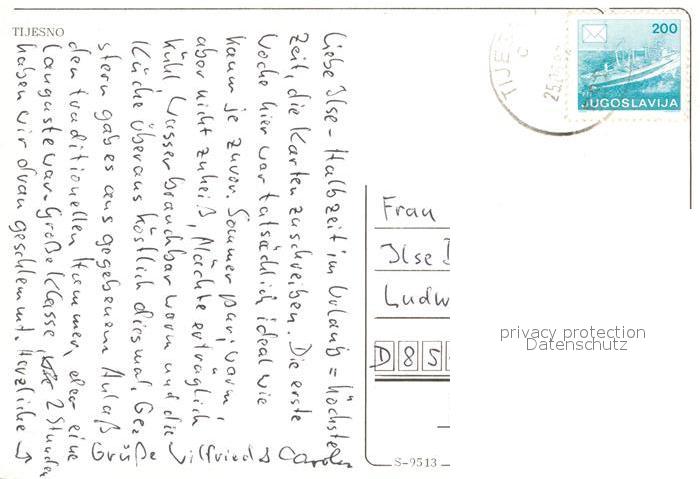 TIJESNO
Liebe Ilse – Halbzeit im Urlaub = höchste
Zeit, die Karten zu schreiben. Die erste
Woche hier war tatsächlich ideal wie
kaum je zuvor. Sommer pur, warm,
aber nicht zu heiß, Nächte erträglich
kühl, Wasser brauchbar warm und die
Küche überaus köstlich diesmal. Ge=
stern gab es aus gegebenem Anlaß
den traditionellen Hummer, der eine
Languste war. Große Klasse, 2 Stunden
haben wir dran geschlemmt. Herzliche →
Grüße Wilfried &
200
JUGOSLAVIJA
TIJE
25
Frau
Ilse
Ludw
D 85
S-9513
privacy protection
Datenschutz